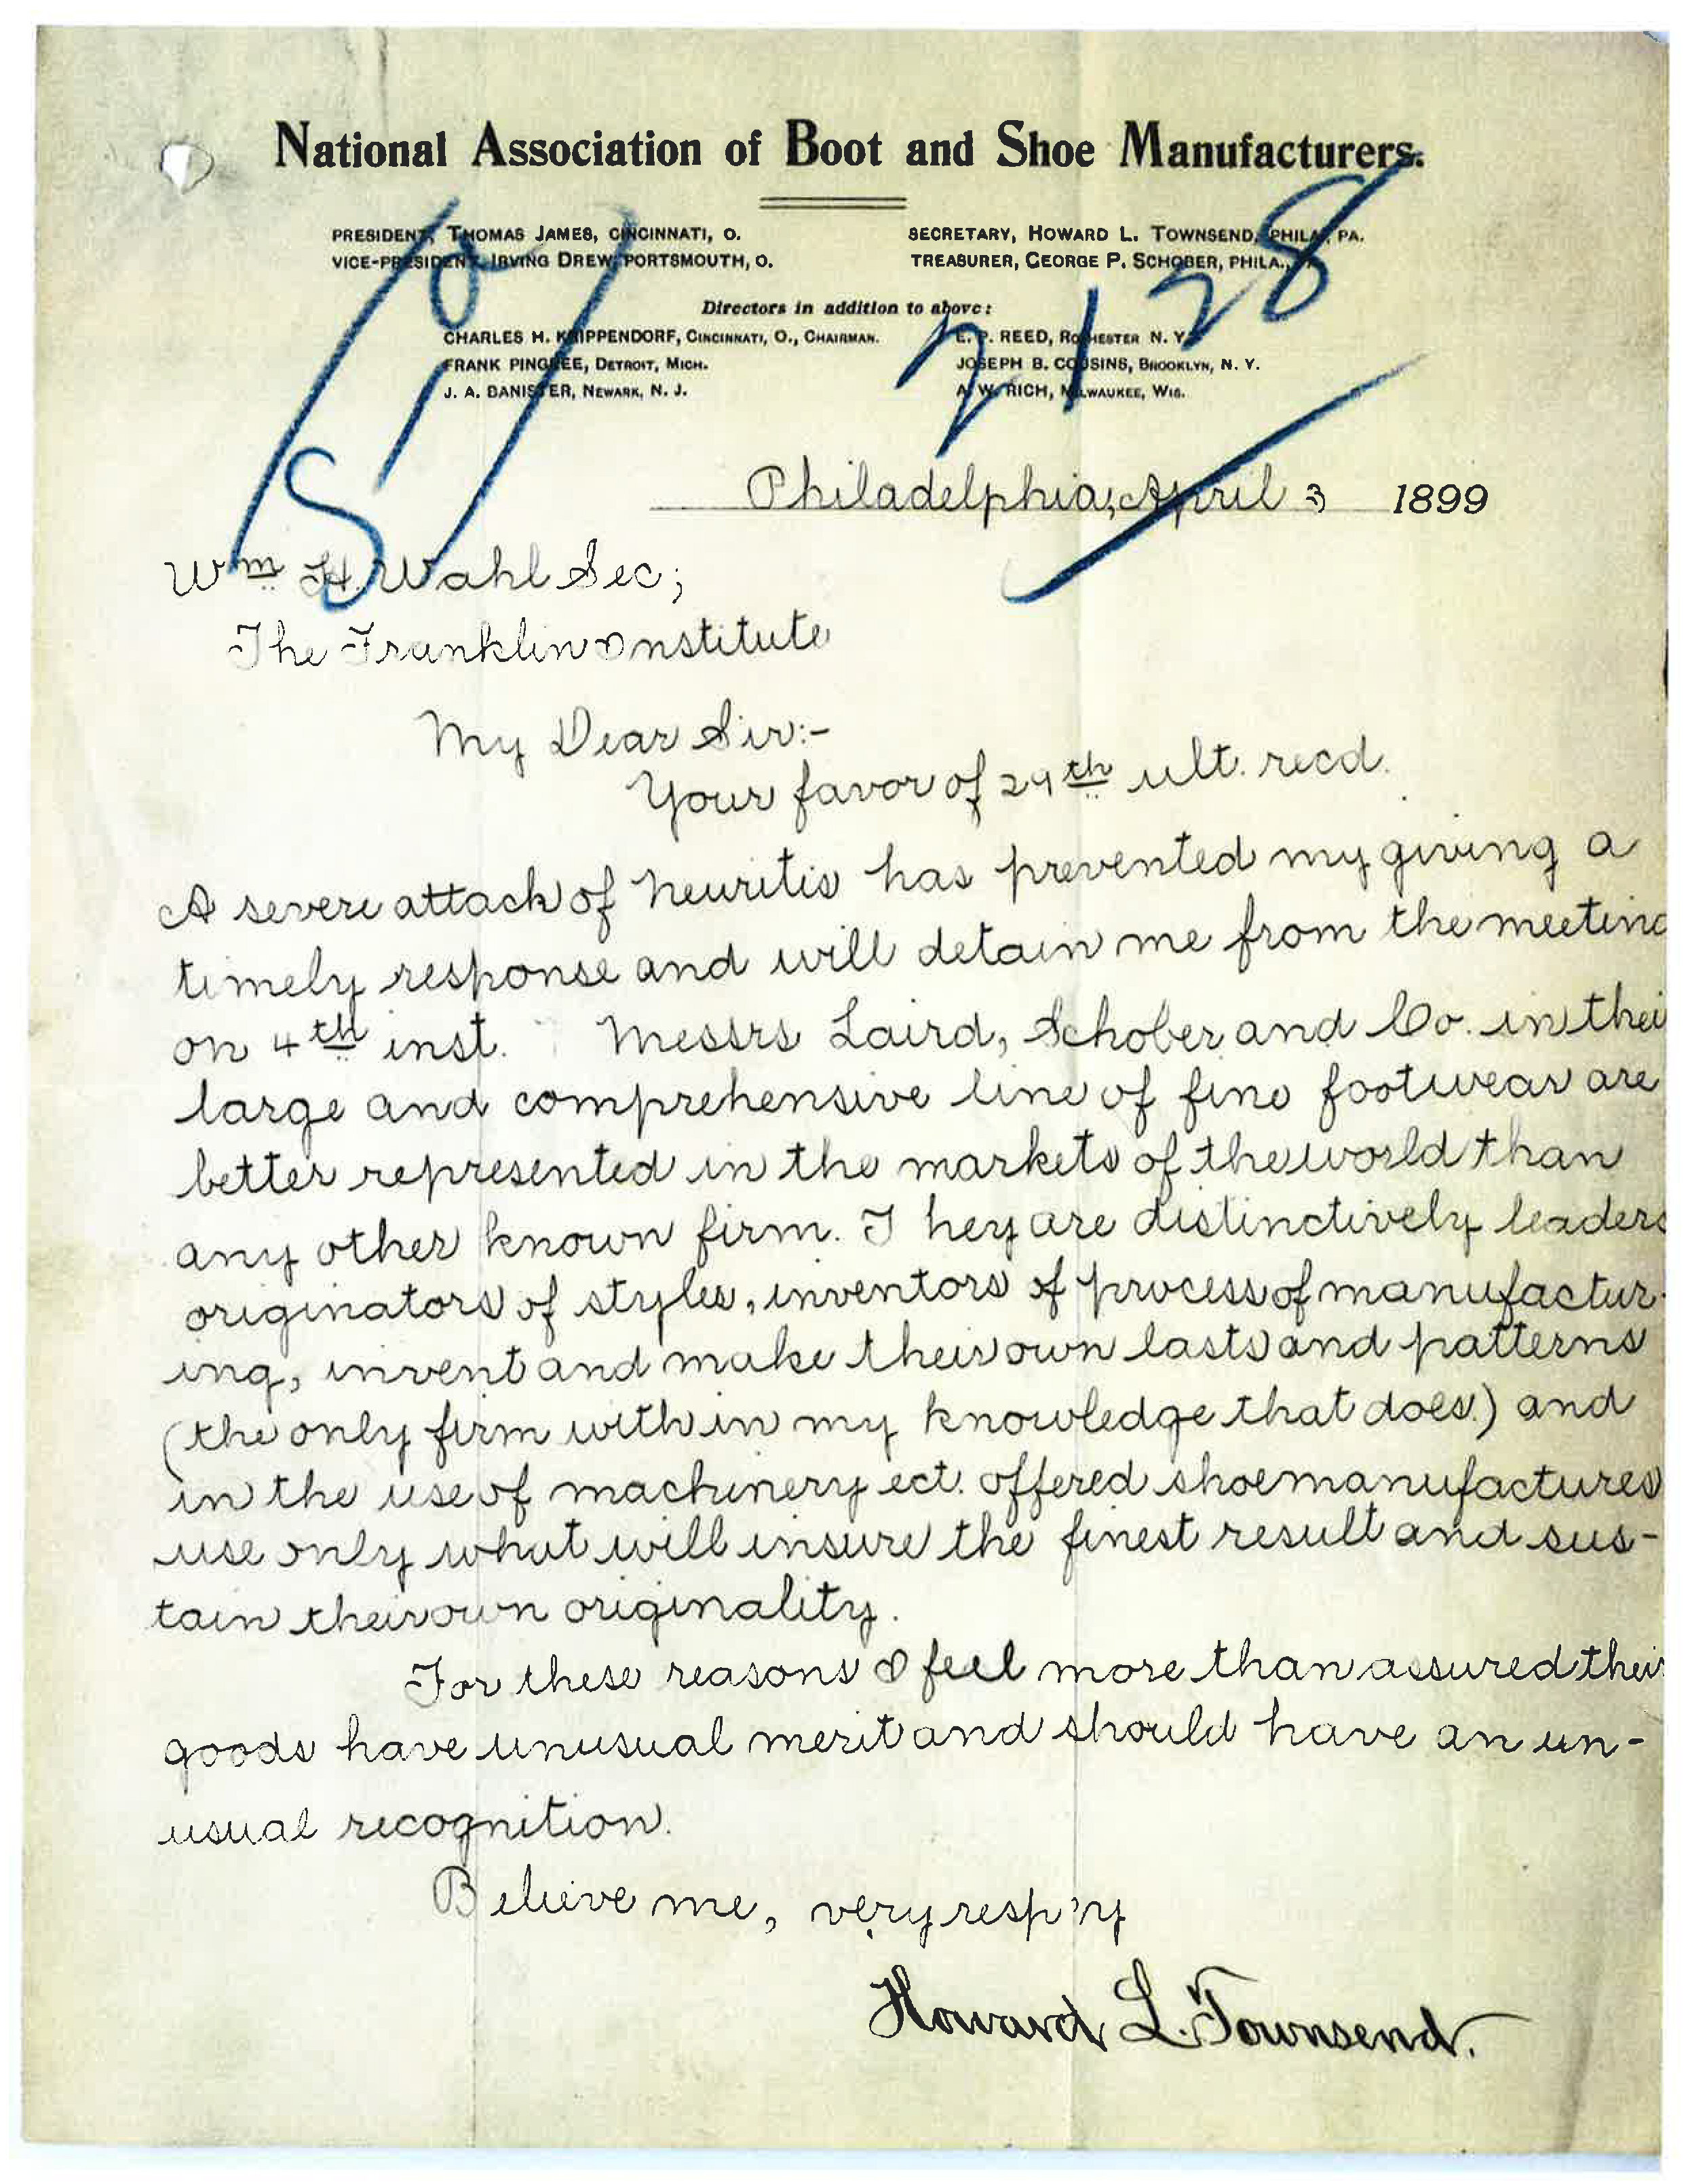 National Association of Boot and Shoe Manufacturers.
PRESIDENT, THOMAS JAMES, CINCINNATI, O.
VICE-PRESIDENT, IRVING DREW, PORTSMOUTH, O.
SECRETARY, HOWARD L. TOWNSEND, PHILA., PA.
TREASURER, GEORGE P. SCHOBER, PHILA.,
Directors in addition to above:
CHARLES H. KRIPPENDORF, CINCINNATI, O., CHAIRMAN.
FRANK PINGREE, DETROIT, MICH.
J. A. BANISTER, NEWARK, N. J.
E. P. REED, ROCHESTER N. Y.
JOSEPH B. COUSINS, BROOKLYN, N. Y.
A. W. RICH, MILWAUKEE, WIS.
2128
Philadelphia, April 3 1899
Wm H. Wahl Sec;
The Franklin Institute
My Dear Sir:-
Your favor of 29th ult. recd.
A severe attack of neuritis has prevented my giving a
timely response and will detain me from the meeting
on 4th inst. Messrs Laird, Schober and Co. in their
large and comprehensive line of fine footwear are
better represented in the markets of the world than
any other known firm. They are distinctively leaders
originators of styles, inventors of process of manufactur-
ing, invent and make their own lasts and patterns
(the only firm within my knowledge that does.) and
in the use of machinery ect. offered shoe manufactures
use only what will insure the finest result and sus-
tain their own originality.
For these reasons I feel more than assured their
goods have unusual merit and should have an un-
usual recognition.
Believe me, very resp'y
Howard L. Townsend.